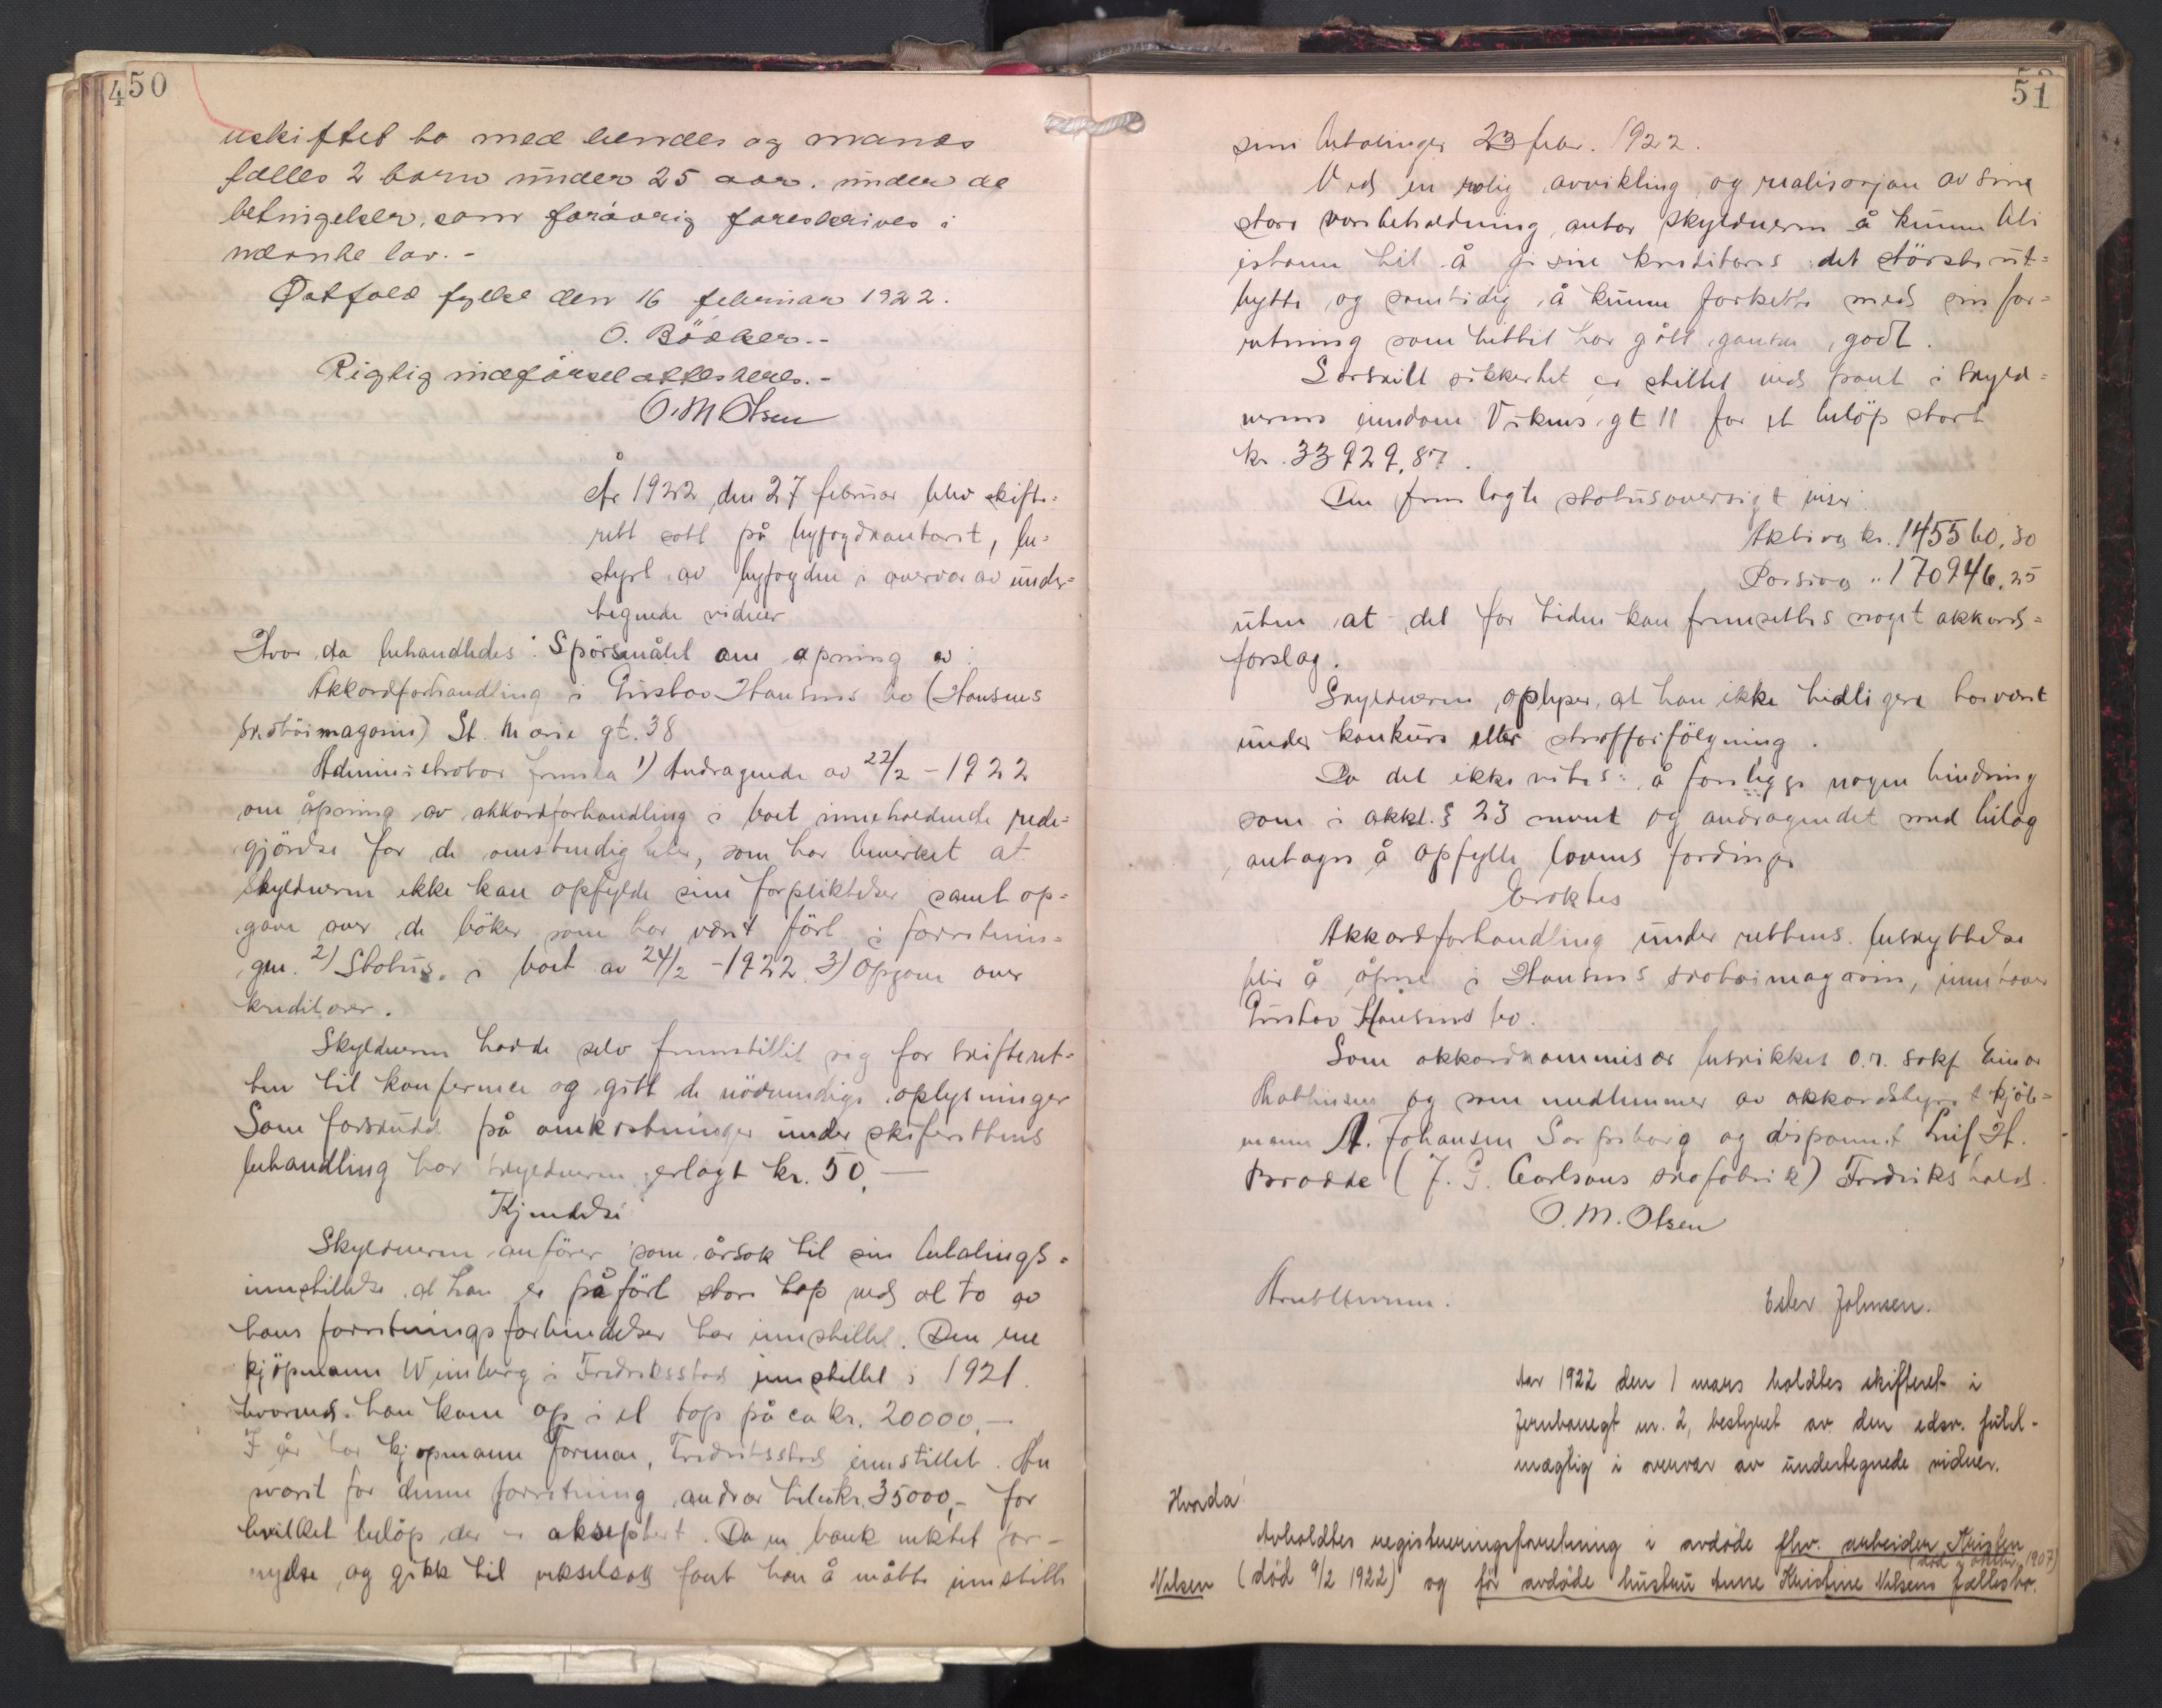 450
uskiftet bo med hendes og mands
fælles 2 barn under 25 aar. under de
betingelser, som forøvrig foreskrives i
nævnte lov. -
Østfold fylke den 16 februar 1922.
O. Böcker. -
Rigtig indførsel attesteres. -
O. M. Olsen
År 1922 den 27 februar blev skifte-
rett satt på byfogdkontoret, be-
styrt av byfogden i overvær av under-
tegnede vidner
Hvor da behandledes: Spörsmålet om åpning av
Akkordforhandling i Gustav Hansens bo (Hansens
skotöimagasin) St. Marie gt. 38
Administrator fremla 1) Andragende av 22/2 - 1922
om åpning av akkordforhandling i boet inneholdende rede-
gjörelse for de omstendigheter, som har bevirket at
skyldneren ikke kan opfylde sine forpliktelser samt op-
gave over de böker som har vært fört i forretnin-
gen. 2) Status i boet av 24/2 - 1922. 3) Opgave over
kreditorer.
Skyldneren hadde selv fremstillet sig for skifteret-
ten til konferance og gitt de nödvendige oplysninger
Som forskudd på omkostninger under skifterettens
behandling har skyldneren erlagt kr. 50,—
Kjendelse
Skyldneren anförer som årsak til sin betalings-
innstillelse at han er påfört store tap ved at to av
hans forretningsforbindelser har innstillet. Den ene
kjöpmann Weinberg i Fredriksstad innstillet i 1921.
hvorved han kom op i et tap på ca kr. 20000,—
I år har kjöpmann Forman, Fredriksstad innstillet. An
svaret for denne forretning andrar til ca kr. 35000,- for
hvilket belöp der er akseptert. Da en bank nektet for-
nyelse, og gikk til vekselsak fant han å måtte innstille
51
sine betalinger 23 febr. 1922.
Ved en rolig avvikling og realisasjon av sin
store varebeholdning antar skyldneren å kunne bli
istann til å gi sine kreditores det störste ut-
bytte og samtidig å kunne fortsette med sin for-
retning som hittil har gått ganske godt.
Særskilt sikkerhet er stillet ved pant i skyld-
nerens eiendom Vikens gt 11 for et belöp stort
kr. 33929,87.
Den fremlagte statusoversigt viser:
Aktiva kr. 145560,30
Passiva " 170946,25
uten at det for tiden kan fremsettes noget akkord-
forslag.
Skyldneren oplyser, at han ikke tidligere har vært
under konkurs eller straffforfölgning.
Da det ikke vites å foreligge nogen hindring
som i akkl. § 23 nevnt og andragendet med bilag
antages å opfylle lovens fordringer
Eraktes
Akkordforhandling under rettens beskyttelse
blir å åpne i Hansens skotöimagasin, innehaver
Gustav Hansens bo.
Som akkordkommisær beskikkes o.r. sakf. Einar
Mathiesen og som medlemmer av akkordstyret kjöb-
mann A. Johansen Sarpsborg og disponent Leif H.
Brodde (J. G. Carlsons skofabrik) Fredrikshald.
O. M. Olsen
Ester Johnsen.
Aar 1922 den 1 mars holdtes skifteret i
Jernbanegt nr. 2, bestyret av den edsv. fuld-
mægtig i overvær av undertegnede vidner.
Hvorda
Avholdtes registreringsforretning i avdøde fhv. arbeider Kristen
Nilsen (død 9/2 1922) og før avdøde hustru Anne Kristine Nilsens (død i oktbr. 1907) fællesbo.